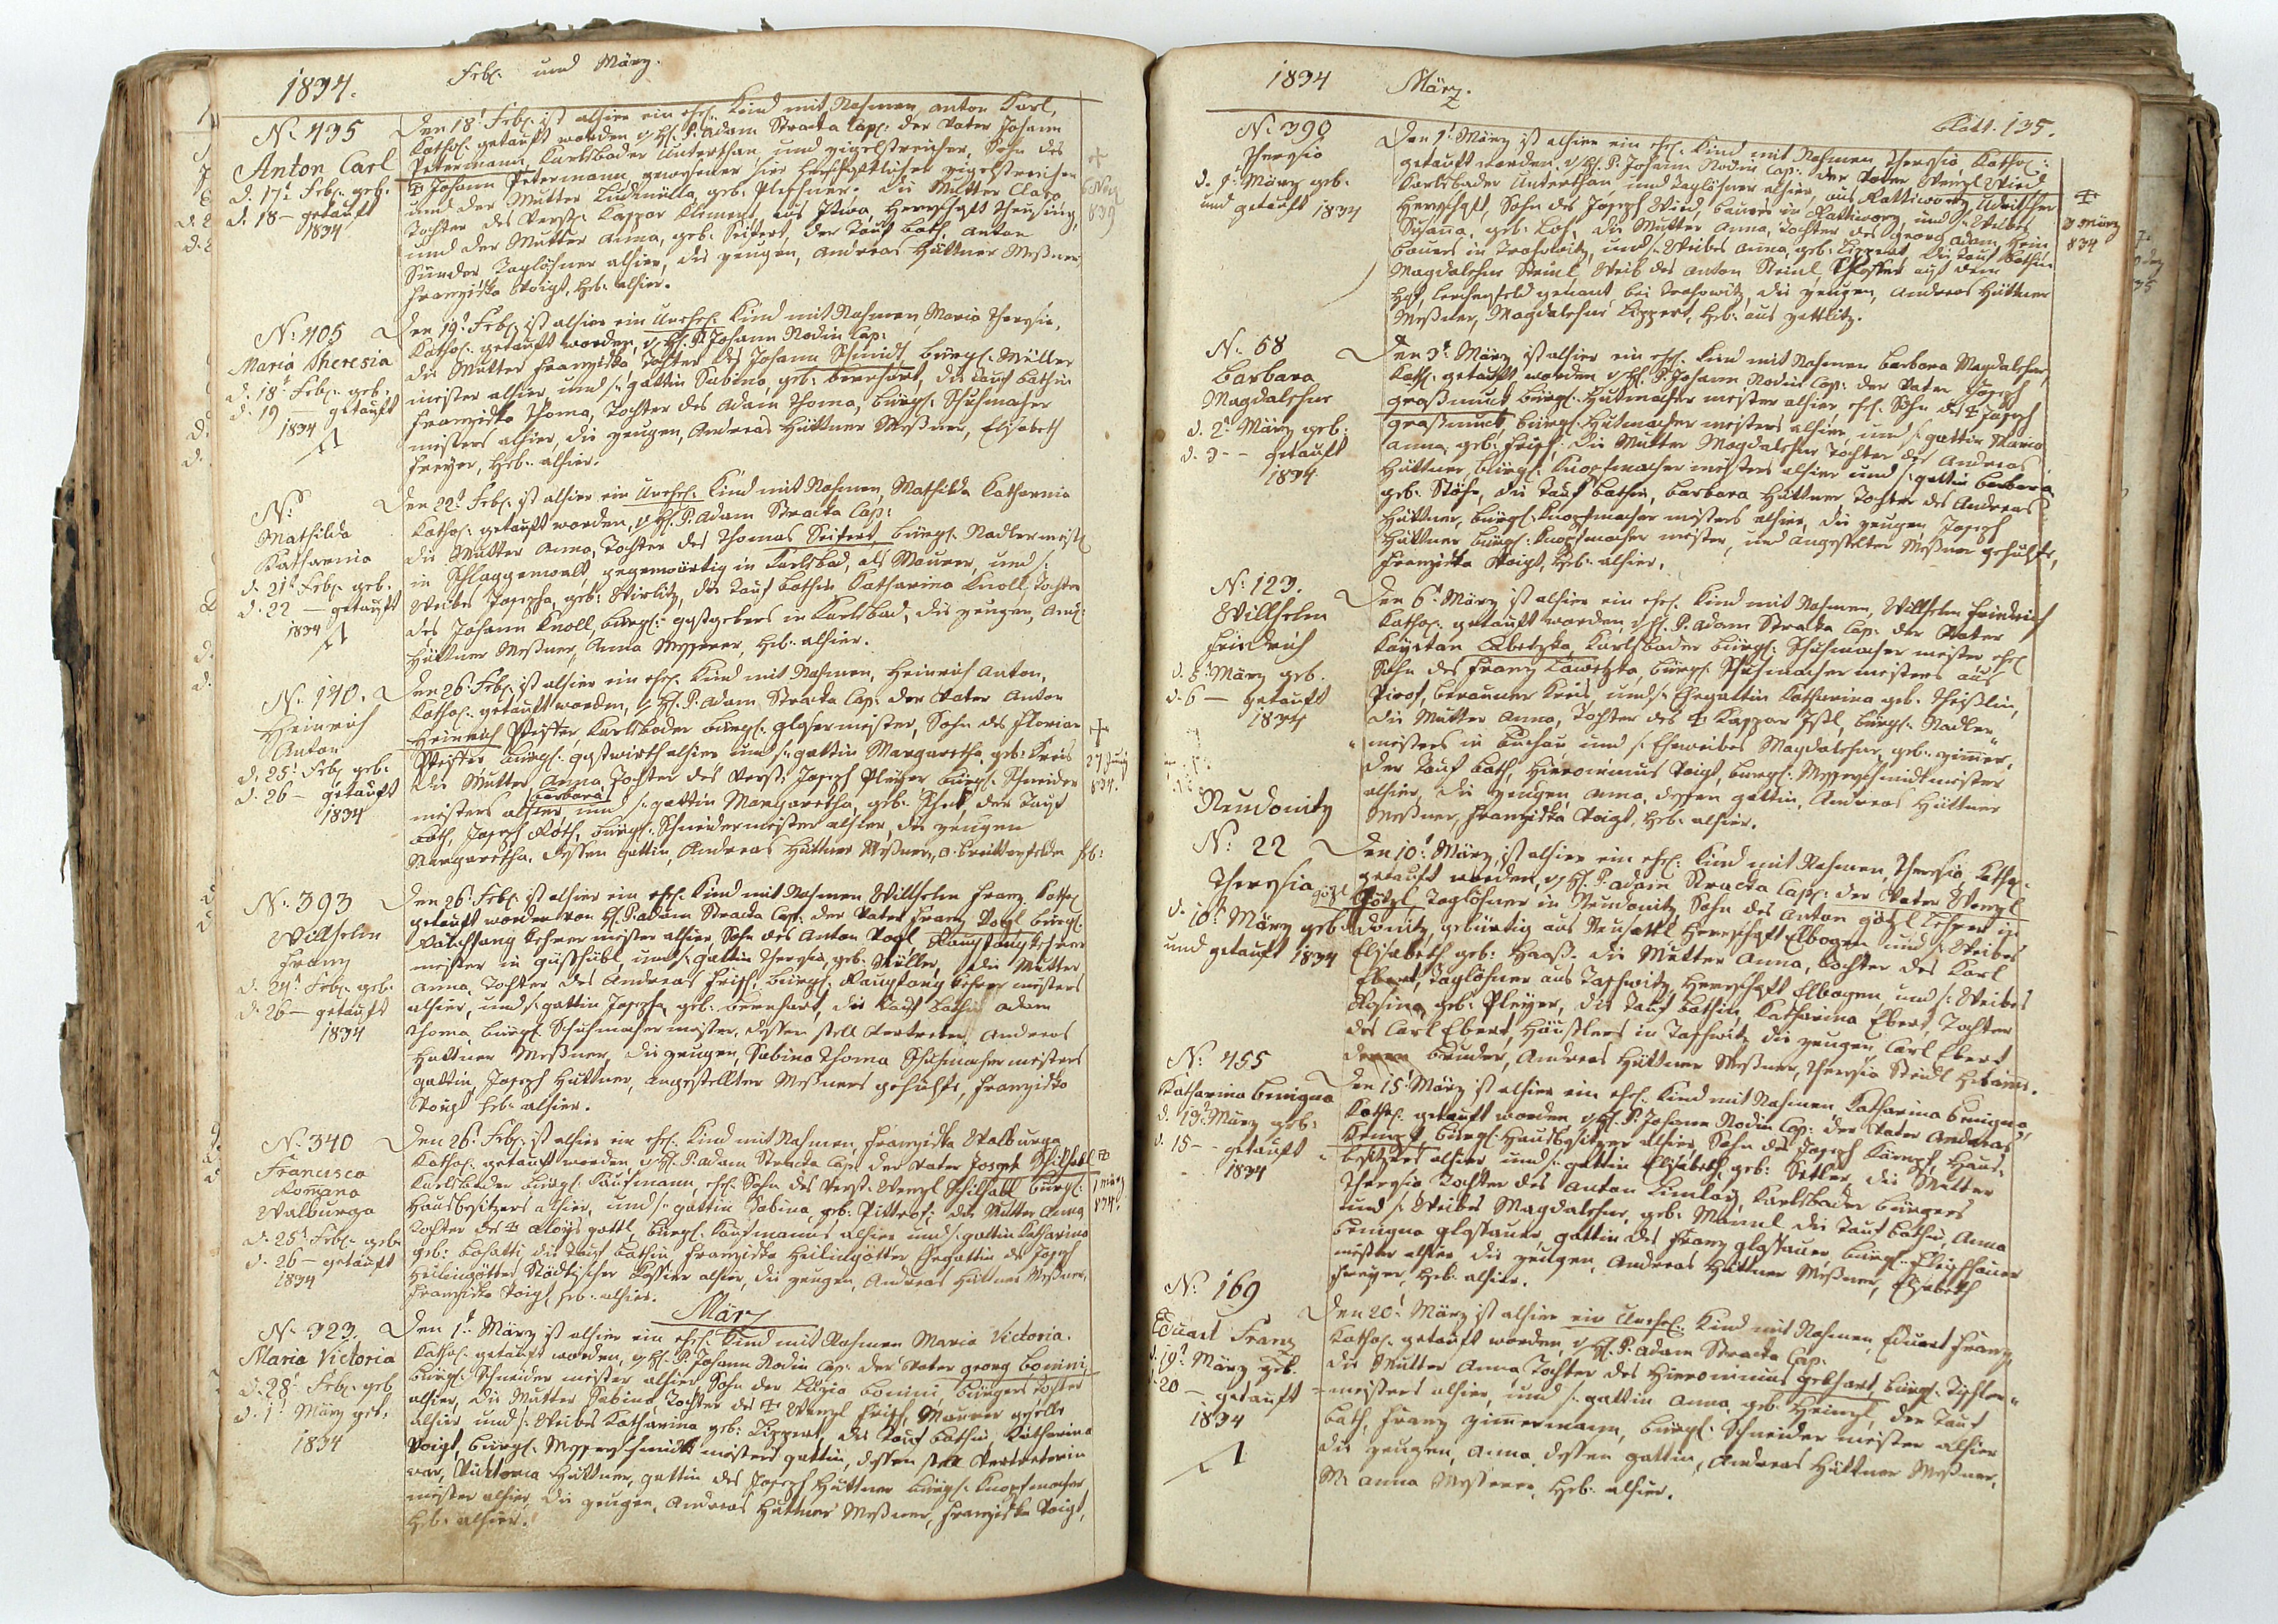 1834.
Febr: und März.
N: 435
Anton Carl
d. 17t Feb: geb:
d. 18 – getauft
1834
Den 18t Feb: ist alhier ein ehel: Kind mit Nahmen Anton Karl,
Kathol: getauft worden v H: P: Adam Stracka Cap: der Vater Johann
Petermann, Karlsbader Unterthan, und Zigelstreicher, Sohn des
Johann Petermann, gewesener hier herrschaftlicher Zigelstreicher
und der Mutter Ludmilla, geb: Plessner. Die Mutter Clara
Tochter des Verst: Caspar Kliment, aus Herrschaft Theusing,
und der Mutter Anna, geb: Seifert, der Tauf Path, Anton
Sünder Taglöhner alhier, die Zeugen, Andreas Hüttner Meßner
Franziska Voigt, Heb: alhier.
839
N: 405
Maria Theresia
d. 18t Feb: geb:
d. 19 – getauft
1834
Den 19t Feb: ist alhier ein Unehel: Kind mit Nahmen Maria Theresia,
Kathol: getauft worden, v H: P: Johann Nodin Cap:
die Mutter Franziska, Tochter des Johann Schmidt, bürgl: Müller
meister alhier, und s: gattin Sabina, geb: Bernhart, die Tauf Bathin
Franziska Thoma, Tochter des Adam Thoma, bürgl: Schuhmacher
meisters alhier, die Zeugen, Andreas Hüttner Meßner, Elisabeth
Freyer, Heb: alhier.
N:
Mathilda
Katharina
d. 21t Feb: geb:
d. 22 – getauft
1834
Den 22t Feb: ist alhier ein Unehel: Kind mit Nahmen, Mathilda Katharina
Kathol: getauft worden, v H: P: Adam Stracka Cap:
die Mutter Anna, Tochter des Thomas Seifert, bürgl: Nadlermeist
in Schlaggenwalt, gegenwärtig in Karlsbad, als Maurer, und s:
Weibes Josepha, geb: die Tauf Bathin Katharina Knoll, Tochter
des Johann Knoll, bürgl: gastgebers in Karlsbad, die Zeugen, And:
Hüttner Meßner, Anna Messerer, Heb: alhier.
N: 140.
Heinrich
Anton
d. 25t Feb: geb:
d. 26 – getauft
1834
Den 26 Feb: ist alhier ein ehel: Kind mit Nahmen, Heinrich Anton,
Kathol: getauft worden, v H: P: Adam Stracka Cap: der Vater Anton
Heinrich Pfeiffer Karlsbader bürgl: glasermeister, Sohn des Florian
Pfeiffer bürgl: gastwirth alhier und s: gattin Margaretha, geb: Kreis
Die Mutter Anna Tochter des Verst: Joseph Pleyer bürgl: Schneider
Barbara
meisters alhier und s: gattin Margaretha, geb: der Tauf
bath, Joseph Roth, bürgl: Schneidermeister alhier, die Zeugen
Margaretha, dessen gattin, Andreas Hüttner Meßner, Heb:
27
834.
N: 393
Willhelm
Franz
d. 24t Feb: geb:
d. 26 – getauft
1834
Den 26 Feb: ist alhier ein ehel: Kind mit Nahmen Willhelm Franz Kathol
getauft worden von H: P: Adam Stracka Cap: der Vater Franz Vogl, bürgl:
Rauchfang Kehrer meister alhier, Sohn des Anton Vogl, Rauchfangkehrer
meister in und s: gattin Theresia, geb: Müller, die Mutter
Anna, Tochter des Andreas Frisch, bürgl: Rauchfang Kehrer meisters
alhier, und s: gattin Josepha geb: Bernhart, die Tauf Bathin Adam
Thoma bürgl: Schuhmacher meister, dessen stell Vertreter, Andreas
Hüttner Meßner, die Zeugen, Sabina Thoma Schuhmacher meisters
gattin, Joseph Hüttner, angestellter Meßners gehülfe, Franziska
Voigt Heb: alhier.
N: 340
Francisca
Romana
Walburga
d. 25t Feb: geb:
d. 26 – getauft
1834
Den 26t Feb: ist alhier ein ehel: Kind mit Nahmen Franziska Walburga
Kathol: getauft worden, v H: P: Adam Stracka Cap: der Vater Joseph Schilhabl
Karlsbader bürgl: Kaufmann, ehel: Sohn des Verst: Wenzl Schilhabl bürgl:
Hausbesitzers alhier, und s: gattin Sabina, geb: Pittrof; die Mutter Anna
Tochter des Aloys gottl, bürgl: Kaufmanns alhier und s: gattin Katharina
geb: die Tauf Bathin Franziska Heilingötter Ehegattin des Joseph
Heilingötter Städtischer Cassier alhier, die Zeugen, Andreas Hüttner Meßner,
Franziska Voigt, Heb: alhier.
1 März
834.
März
N: 323.
Maria Victoria
d. 28t Feb: geb
d. 1t März get:
1834
Den 1t März ist alhier ein ehel: Kind mit Nahmen Maria Victoria.
Kathol: getauft worden, v H: P: Johann Nodin Cap: der Vater Georg Bonini,
bürgl: Schneider meister alhier, Sohn der Luzia Bonini, bürgers Tochter
alhier, die Mutter Sabina, Tochter des Wenzl Frisch, Maurer geselle
alhier und s: Weibes Katharina geb: Lippert, die Tauf Bathin Katharina
Voigt, bürgl: Messerschmidt meisters gattin, dessen stell Vertreterin
war, Victoria Hüttner, gattin des Joseph Hüttner bürgl: Knopfmacher
meister alhier, die Zeugen, Andreas Hüttner Meßner, Franziska Voigt,
Heb: alhier.
1834
März.
Blatt. 135.
N: 390
Theresia
d. 1t März geb:
und getauft 1834
Den 1t März ist alhier ein ehel: Kind mit Nahmen Theresia, Kathol:
getauft worden, v H: P: Johann Nodin Cap: der Vater Wenzl Wied
Karlsbader Unterthan, und Taglöhner alhier, aus
Herrschaft, Sohn des Joseph Wied, Bauers in und s: Weibes
Susanna, geb: die Mutter Anna, Tochter des Georg Adam
Bauers in und s: Weibes Anna, geb: Lippert, die Tauf Bathin
Magdalehna Steinl, Weib des Anton Steinl auf dem
Hof, Lerchenfeld genant bei die Zeugen, Andreas Hüttner
Meßner, Magdalehna Lippert, Heb: aus Zettlitz.
3 März
834
N: 68
Barbara
Magdalehna
d. 2t März geb:
d. 3 – getauft
1834
Den 3t März ist alhier ein ehel: Kind mit Nahmen Barbara Magdalehna
Kath: getauft worden v H: P: Johann Nodin Cap: der Vater Joseph
Graßmuck bürgl: Hutmacher meister alhier, ehel: Sohn des Joseph
Graßmuck, bürgl: Hutmacher meisters alhier, und s: gattin Maria
Anna, geb: Frisch; Die Mutter Magdalehna Tochter des Andreas
Hüttner, bürgl: Knopfmacher meisters alhier und s: gattin Barbara
geb: Stöhr, die Tauf Bathin, Barbara Hüttner Tochter des Andreas
Hüttner, bürgl: Knopfmacher meisters alhier, die Zeugen Joseph
Hüttner bürgl: Knopfmacher meister, und Angestelter Meßner gehülfe,
Franziska Voigt, Heb: alhier.
N: 123.
Willhelm
Friedrich
d. 5t März geb:
d. 6 – getauft
1834
Den 6t März ist alhier ein ehel: Kind mit Nahmen, Willhelm Friedrich
Kathol: getauft worden, v H: P: Adam Stracka Cap: der Vater
Karlsbader bürgl: Schuhmacher meister ehel
Sohn des Franz bürgl: Schuhmacher meisters aus
Berauner Kreis, und s: Ehegattin Katharina geb:
die Mutter Anna, Tochter des Kaspar bürgl: Nadler
meisters in Buchau und s: Eheweibes Magdalehna, geb: Zimmer,
der Tauf Bath, Hieronimus Voigt, bürgl: Messerschmidt meister
alhier, die Zeugen, Anna, dessen gattin, Andreas Hüttner
Meßner, Franziska Voigt, Heb: alhier.
Neudonitz
N: 22
Theresia
d. 10t März geb:
und getauft 1834
Den 10t März, ist alhier ein ehel: Kind mit Nahmen, Theresia, Kathol:
getauft worden, v H: P: Adam Stracka Cap: der Vater Wenzl
Götzl, Taglöhner in Neudonitz, Sohn des Anton Götzl Lehrer in
Donitz, gebürtig aus Neusattl Herrschaft Elbogen und s: Weibes
Elisabeth geb: Haaß. die Mutter Anna, Tochter des Karl
Ebert, Taglöhner aus Taschwitz, Herrschaft Elbogen, und s: Weibes
Rosina, geb: Pleyer, die Tauf Bathin, Katharina Ebert, Tochter
des Carl Ebert, Häuslers in Taschwitz, die Zeugen, Carl Ebert
deren Bruder, Andreas Hüttner Meßner, Theresia Steidl Hebamm.
N: 455
Katharina Benigna
d. 14t März geb:
d. 15 – getauft
1834
Den 15t März ist alhier ein ehel: Kind mit Nahmen, Katharina Benigna,
Kathol: getauft worden, v H: P: Johann Nodin Cap: der Vater Andreas
Kempf, bürgl: Hausbesitzer alhier, Sohn des Joseph Kämpf, Haus-
besitzers alhier und s: gattin Elisabeth, geb: Setler, die Mutter
Theresia Tochter des Anton Karlsbader bürgers
und s: Weibes Magdalehna, geb: Mannl die Tauf Bathin, Anna
Benigna Glastauer, gattin des Franz Glastauer, bürgl: Fleischhauer
meister alhier die Zeugen, Andreas Hüttner Meßner, Elisabeth
Freyer, Heb: alhier.
N: 169
Eduart Franz
d. 19t März geb.
d. 20 – getauft
1834
Den 20t März ist alhier ein Unehel: Kind mit Nahmen, Eduart Franz,
Kathol: getauft worden, v H: P: Adam Stracka Cap:
die Mutter Anna, Tochter des Hieronimus Gebhart, bürgl: Tischler
meisters alhier, und s: gattin Anna, geb: Heinzl, der Tauf
bath, Franz Zimmermann, bürgl: Schneider meister alhier
die Zeugen, Anna, dessen gattin, Andreas Hüttner Meßner,
M: Anna Messerer, Heb: alhier.